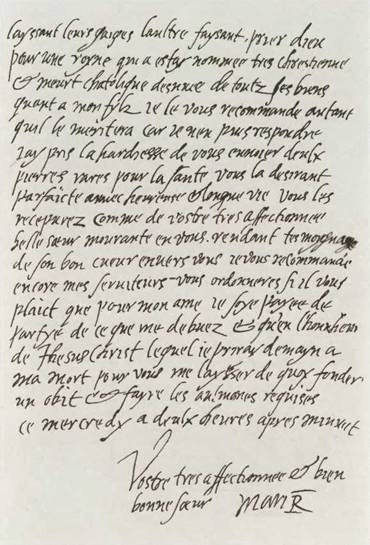 layssant leurs gaiges laultre faysant prier dieu
pour une royne qui a estay nommee tres chrestienne
& meurt chatolique desnuee de toutz ses biens
quant a mon fylz ie le vous recommande autant
quil le meritera car ie nen puis respondre
Iay pris la hardiesse de vous enuoier deulx
pierres rares pour la sante vous la desirant
parfaicte auuec heureuse & longue vie Vous les
receuurez comme de vostre tres affectionnee
belle soeur mourante en vous rendant tesmoygnage
de son bon cueur enuers vous ie vous recommande
encore mes seruiteurs vous ordonneres si il vous
plaict que pour mon ame ie soye payee de
partye de ce que me debuez & quen lhonnheur
de Jhesus Christ lequel ie priray demayn a
ma mort pour vous me laysser de quoy fonder
un obit & fayre les aulmones requises
ce mercredy a deulx heures apres minuit
Vostre tres affectionnee & bien
bonne soeur MariR